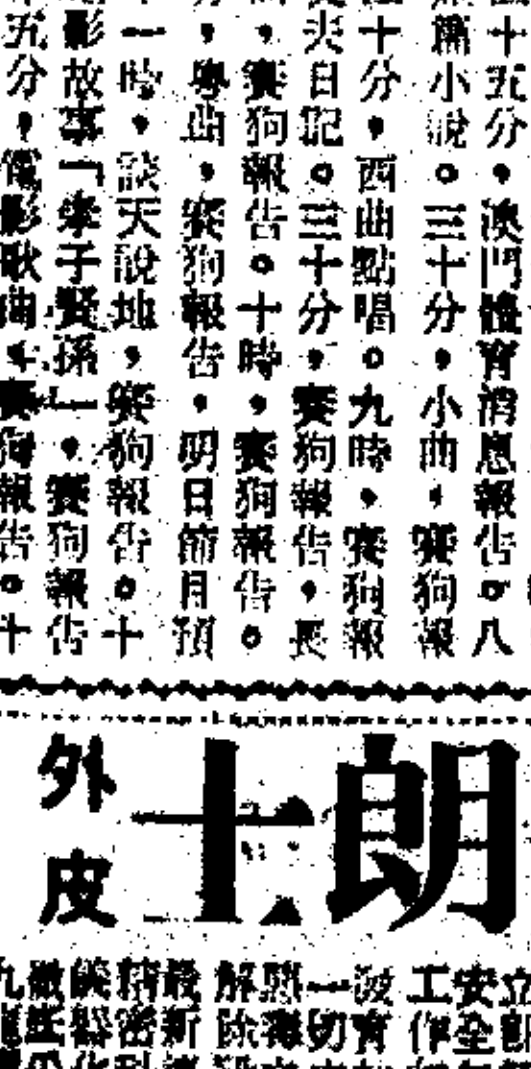 十五分，澳門體育消息報告。八
小說。三十分，小曲，賽狗報
十分，西曲點唱。九時，賽狗報
夫日記。三十分，賽狗報告，長
，賽狗報告。十時，賽狗報告。
，粵曲，賽狗報告，明日節目預
一時，談天說地，賽狗報告。十
影故事「孝子賢孫」，賽狗報告
五分，電影歌曲，賽狗報告。十
朗士
外皮
立即
安全
工作
一切
解除
最新
精密
儀器